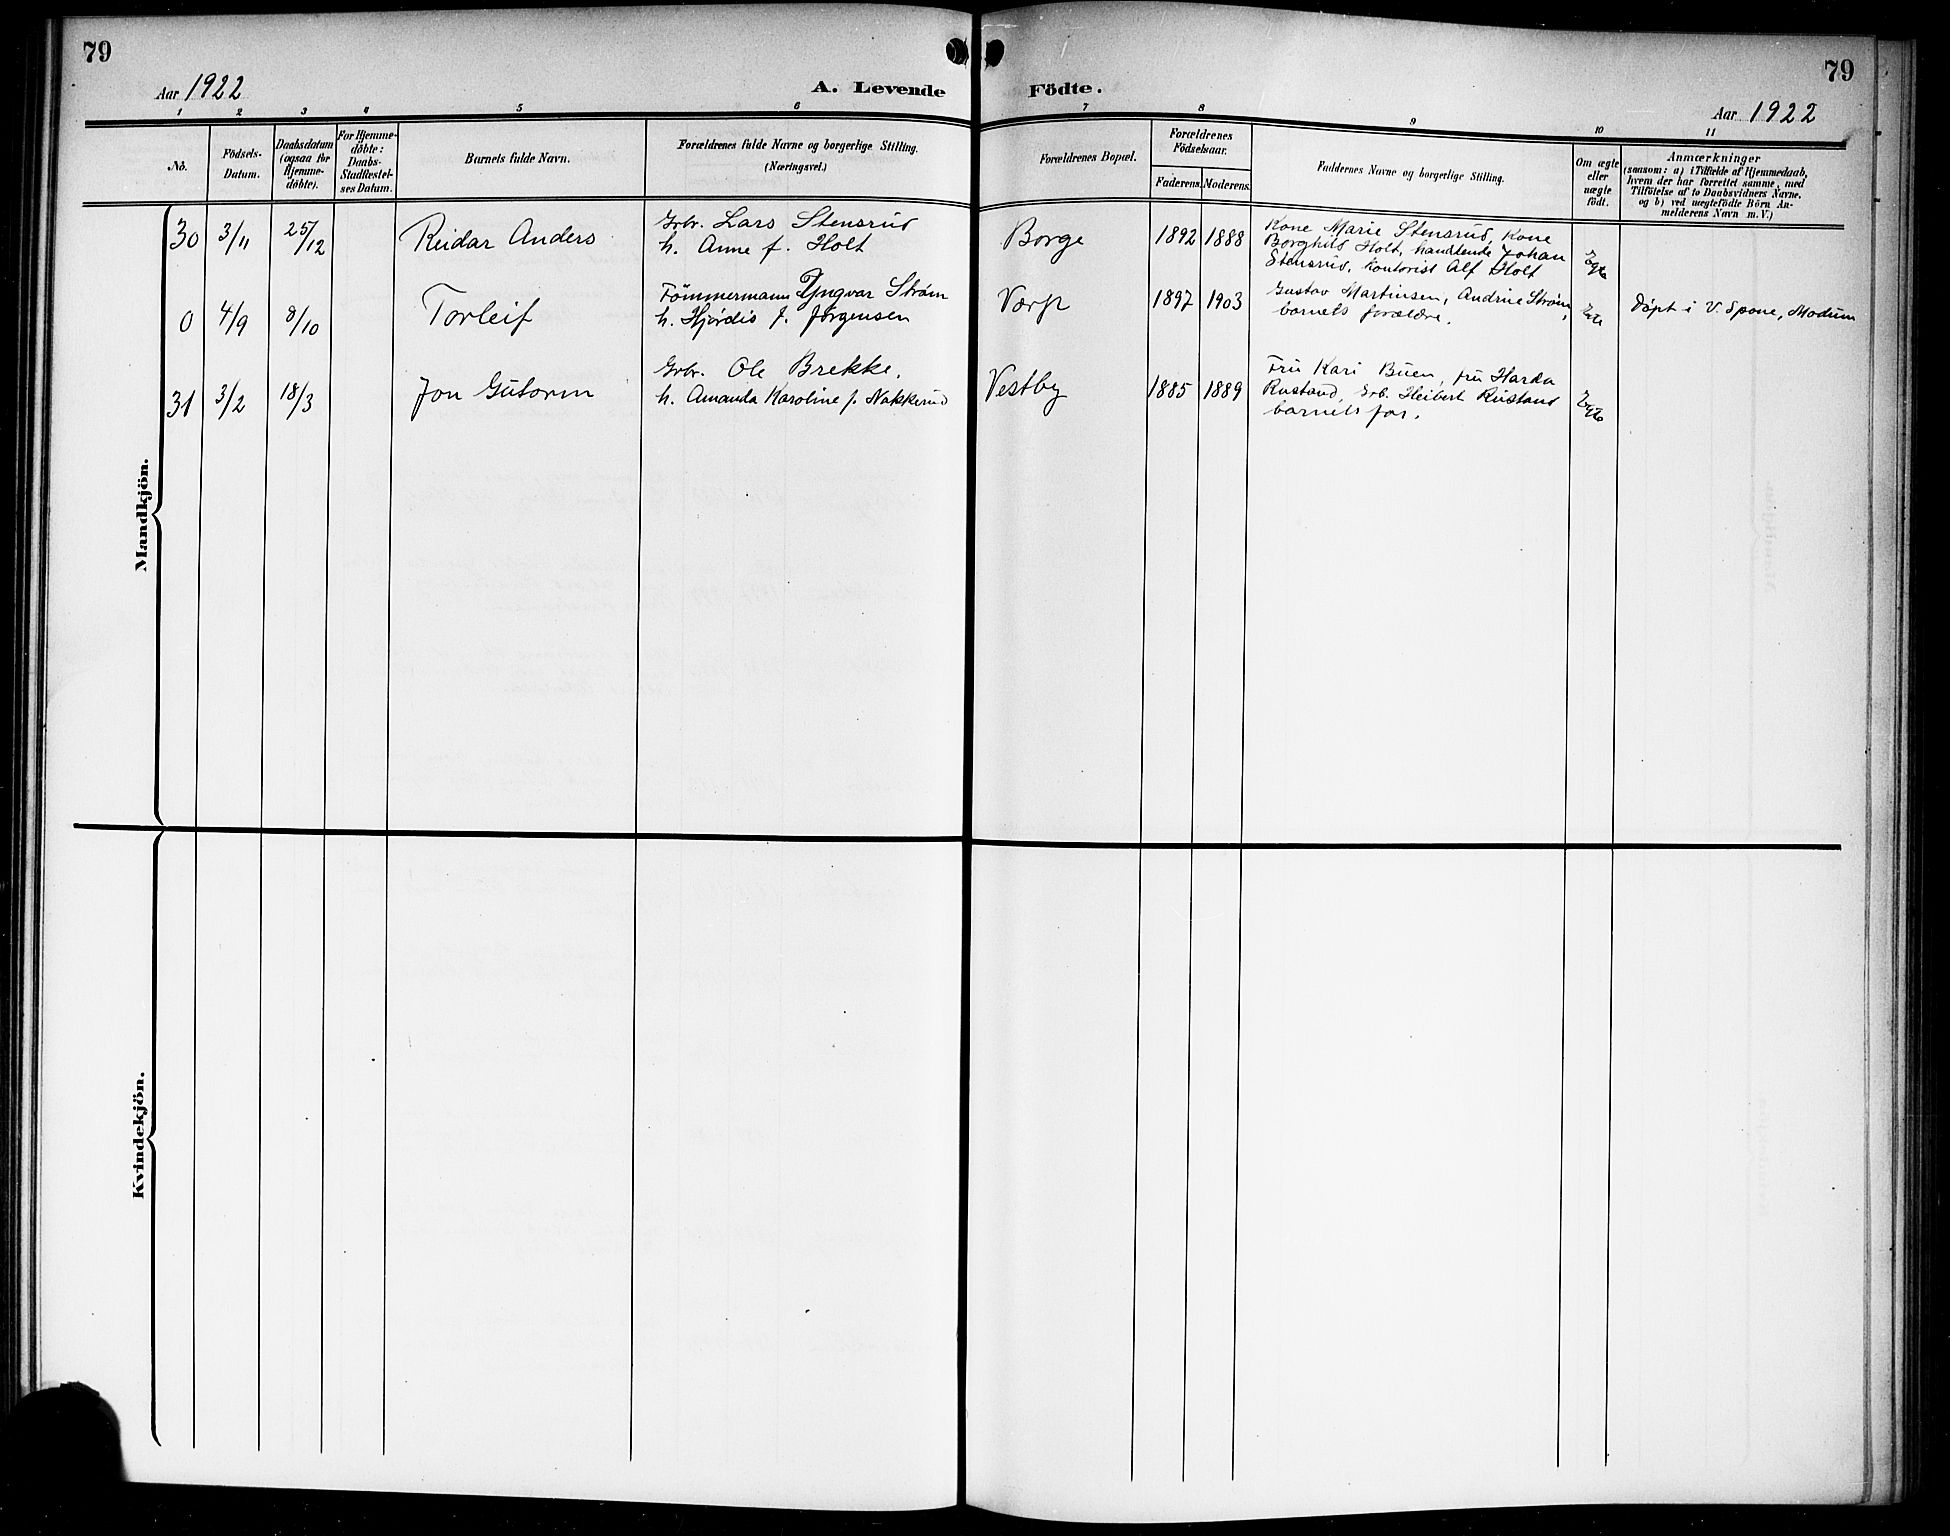 79
Aar 1922
A. Levende
1 2 3 4 5 6
No.
Födsels-
Datum.
Daabsdatum
(ogsaa for
Hjemme-
döbte).
For Hjemme-
döbte:
Daabs-
Stadfæstel-
ses Datum.
Barnets fulde Navn.
Forældrenes fulde Navne og borgerlige Stilling.
(Næringsvei.)
Mandkjön.
30 3/11 25/12 Reidar Anders
Grbr. Lars Stensrud
h. Anne f. Holt
0 4/9 8/10 Torleif
Tömmermann Yngvar Strøm
h. Hjørdis f. Jørgensen
31 3/2 18/3 Jon Gutorm
Grbr. Ole Brekke.
h. Amanda Karoline f. Nakkerud
Kvindekjön.
Födte.
79
Aar 1922
7 8 9 10 11
Forældrenes Bopæl.
Forældrenes
Födselsaar.
Faderens. Moderens.
Faddernes Navne og borgerlige Stilling.
Om ægte
eller
uægte
födt.
Anmærkninger
(saasom: a) i Tilfælde af Hjemmedaab,
hvem der har forrettet samme, med
Tilföielse af to Daabsvidners Navne.
og b) ved uægtefödte Börn An-
melderens Navn m. V.)
Borge 1892 1888
Kone Marie Stensrud, Kone
Borghild Holt, handlende Johan
Stensrud, kontorist Alf Holt
Egte
1897 1903
Gustav Martinsen, Andrine Strøm,
barnets forældre.
Döpt i V. Spone, Modum
Vestby 1885 1889
Fru Kari Buen, fru Harda
Rustand, Grb. Heibert Rustand
barnets far.
Egte